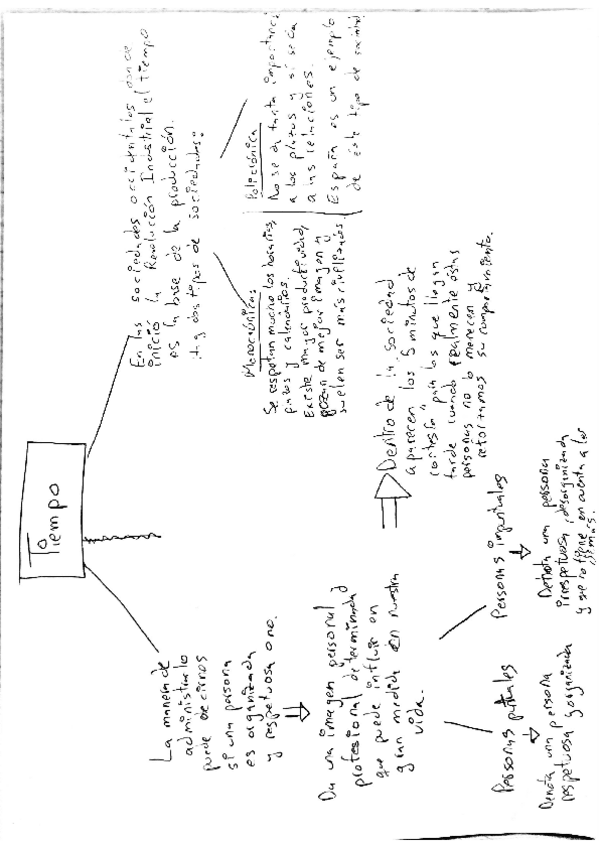 Tiempo
La manera de
administrarlo
puede decirnos
si una persona
es organizada
y respetuosa o no.
Da una imagen personal y
profesional determinada
que puede influir en
gran medida en nuestra
vida.
Personas puntuales
Denota una persona
respetuosa y organizada
Personas impuntuales
Denota una persona
irrespetuosa, desorganizada
y que no tiene en cuenta a los
demás.
En las sociedades occidentales donde
inició la Revolución Industrial el tiempo
es la base de la producción.
Hay dos tipos de sociedades:
Monocrónicas
Se respetan mucho los horarios,
plazos y calendarios.
Existe mayor productividad,
gozan de mejor imagen y
suelen ser más civilizados.
Policrónica
No se da tanta importancia
a los plazos y sí se da
a las relaciones.
España es un ejemplo
de este tipo de sociedad.
Dentro de la sociedad
aparecen los "5 minutos de
cortesía" para los que llegan
tarde cuando realmente éstas
personas no lo merecen y
reforzamos su comportamiento.